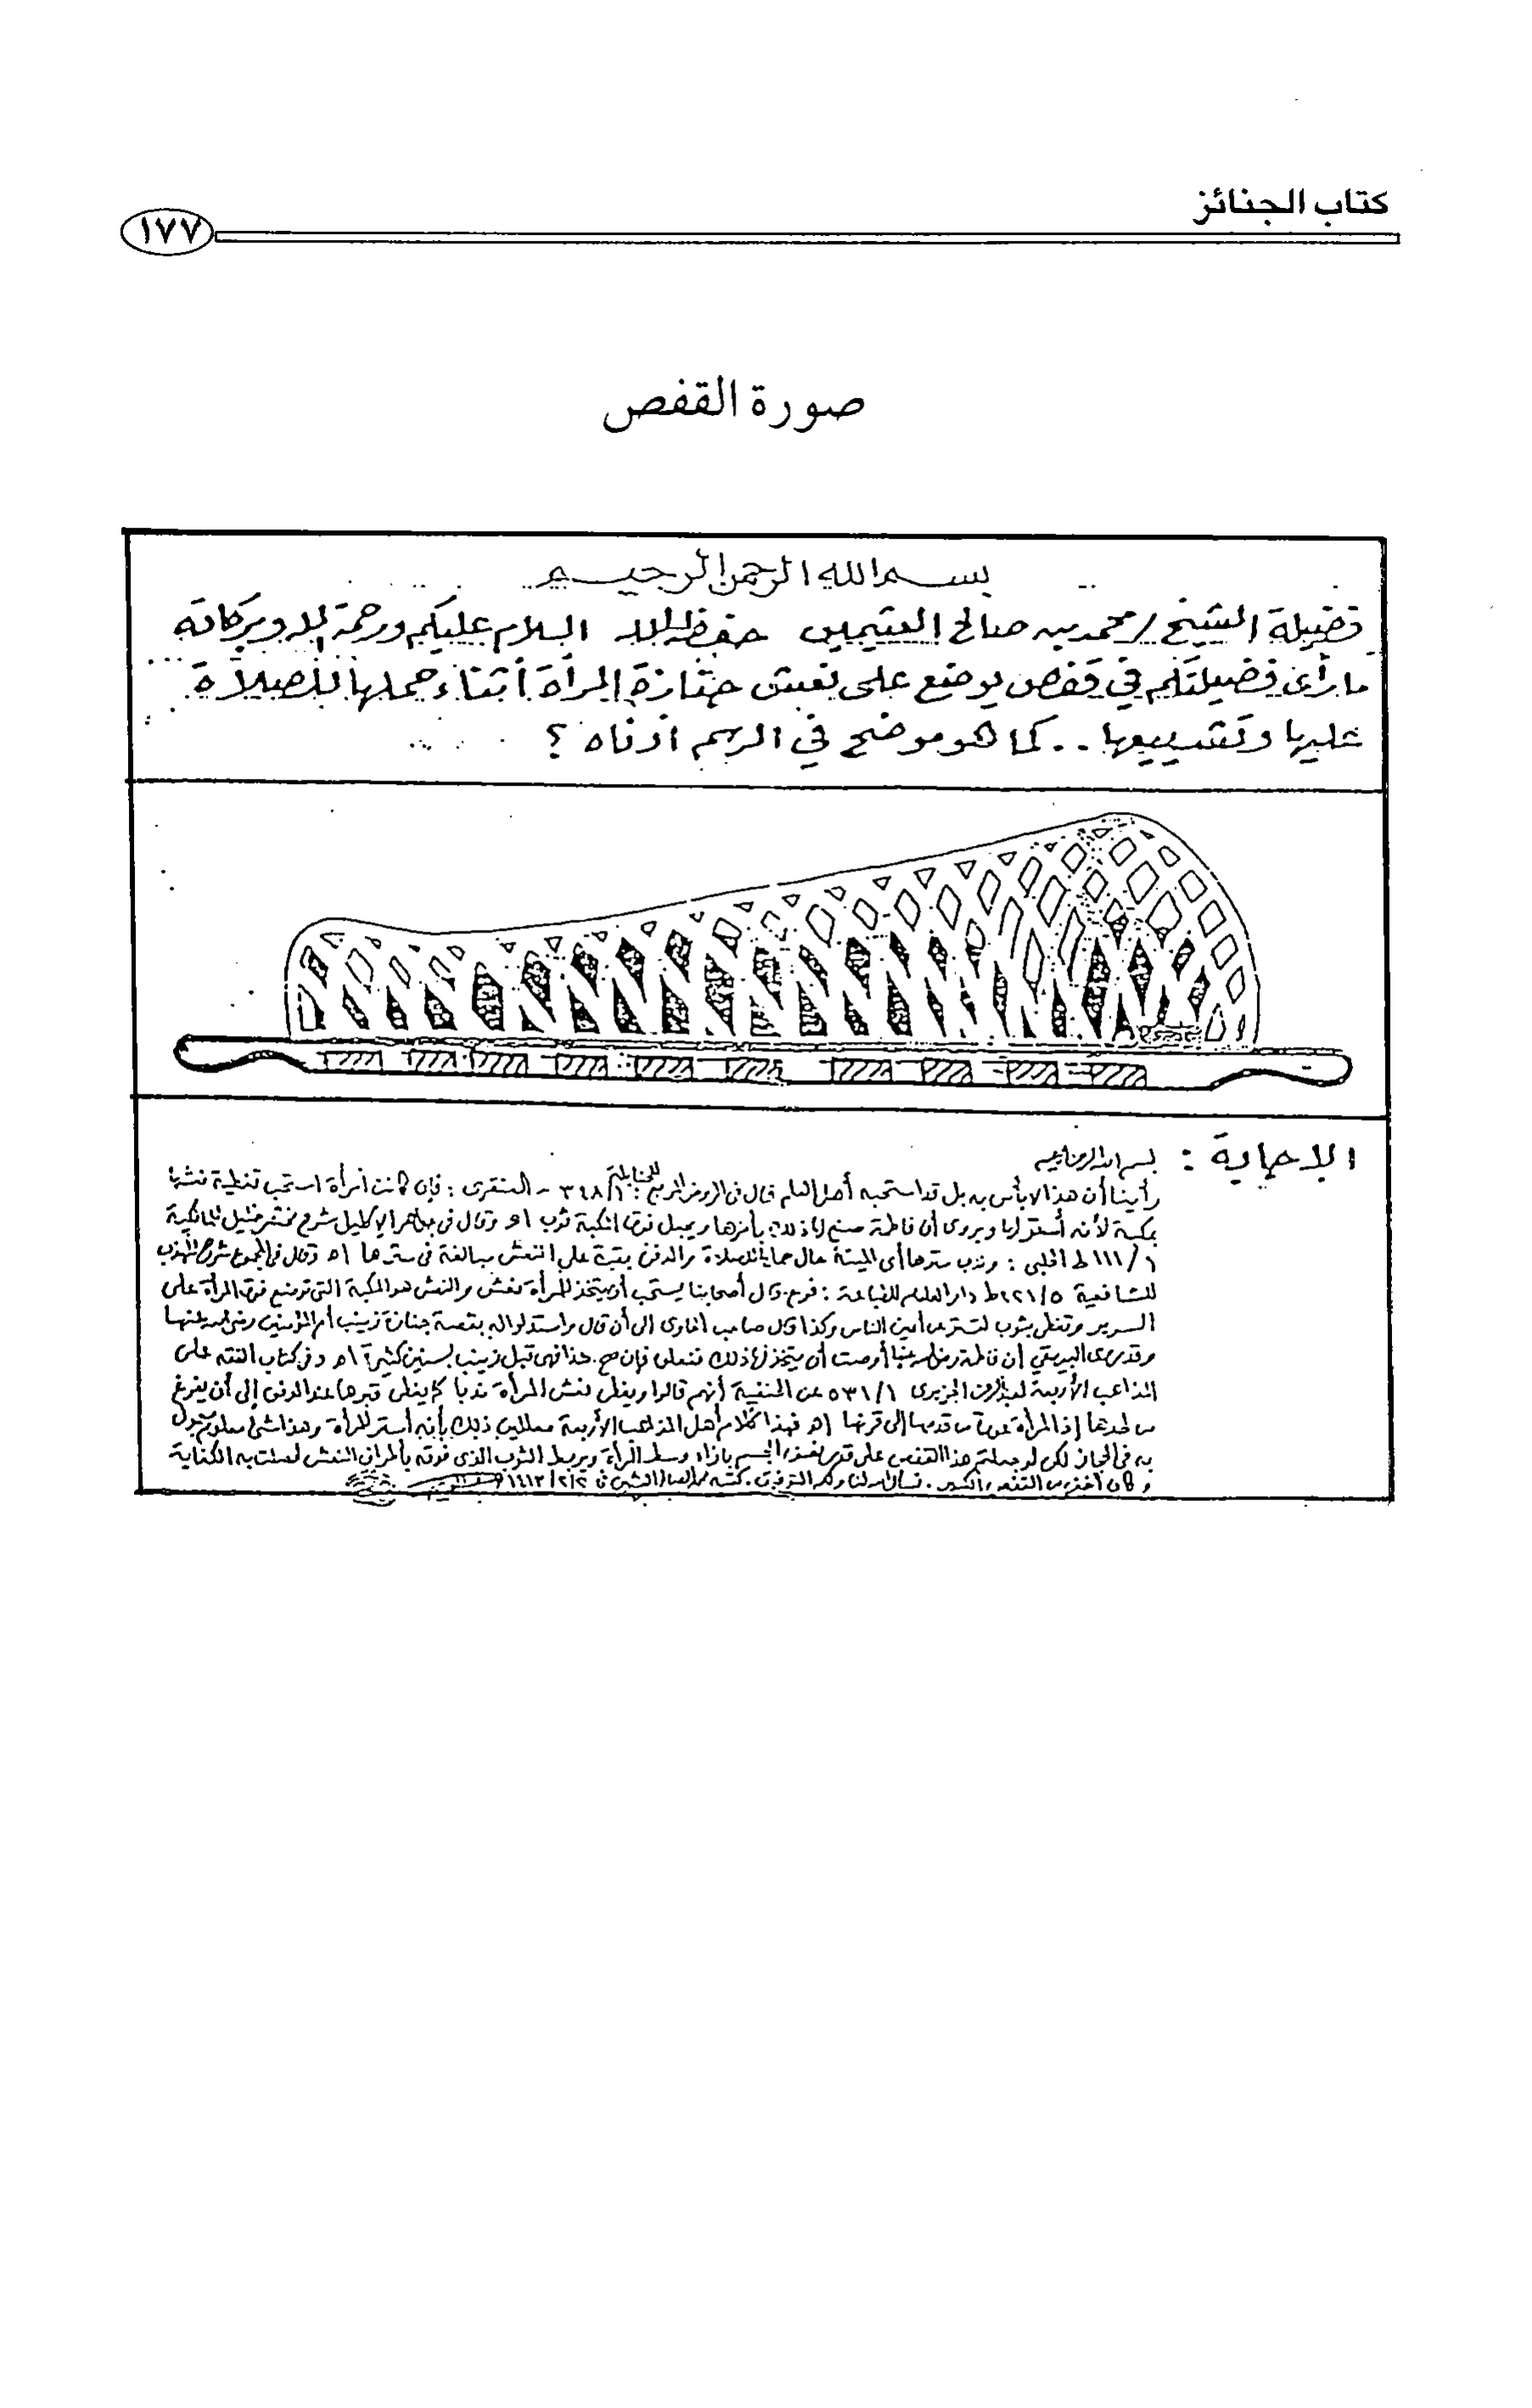 كتاب الجنائز
١٧٧
صورة القفص
بسم الله الرحمن الرحيم
فضيلة الشيخ / محمد بن صالح العثيمين حفظه الله السلام عليكم ورحمة الله وبركاته
ما رأي فضيلتكم في قفص يوضع على نعش جنازة المرأة أثناء حملها للصلاة
عليها وتشييعها .. كما هو موضح في الرسم أدناه ؟
الإجابة :
بسم الله الرحمن الرحيم
رأينا أن هذا لا بأس به بل قد استحبه أهل العلم قال في الروض المربع للحنابلة : ٣٤٨/١ - العنقري : فإن كانت امرأة استحب تغطية نعشها
بمكبة لأنه أستر لها ويروى أن فاطمة صنع لها ذلك بأمرها ويجعل فوق المكبة ثوب اهـ وقال في جواهر الإكليل شرح مختصر خليل للمالكية
١١١/١ ط الحلبي : وندب سترها أي الميتة حال حملها للصلاة والدفن بقبة على النعش مبالغة في سترها اهـ وقال في المجموع شرح المهذب
للشافعية ٢٢١/٥ ط دار العلوم للطباعة : فرع قال أصحابنا يستحب أن يتخذ للمرأة نعش والنعش هو المكبة التي توضع فوق المرأة على
السرير وتغطى بثوب لتستر عن أعين الناس وكذا قال صاحب الحاوي إلى أن قال واستدلوا له بقصة جنازة زينب أم المؤمنين رضي الله عنها
وقد روى البيهقي أن فاطمة رضي الله عنها أوصت أن يتخذ لها ذلك ففعلوه فإن صح هذا فهي قبل زينب بسنين كثيرة اهـ وفي كتاب الفقه على
المذاهب الأربعة لعبد الرحمن الجزيري ٥٣١/١ عن الحنفية أنهم قالوا ويغطى نعش المرأة ندبا كما يغطى قبرها عند الدفن إلى أن يفرغ
من لحدها إذ المرأة عورة من قدمها إلى قرنها اهـ فهذا كلام أهل المذاهب الأربعة معللين ذلك بأنه أستر للمرأة وهذا شيء معلوم معمول
به في الحجاز لكن لو جعلتم هذا القفص على قوس بإزاء وسط المرأة ويربط الثوب الذي فوقه بأطراف النعش لحصلت به الكفاية
وكان أخف من القفص الكبير . نسأل الله لنا ولكم التوفيق . كتبه محمد الصالح العثيمين في ١٤١٣/٢/٢